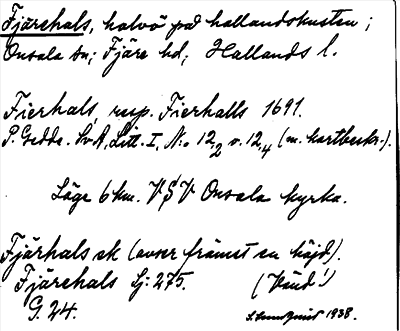 Fjärehals, halvö på hallandskusten ;
Onsala sn; Fjäre hd; Hallands l.
Fierhals, resp. Fierhalls 1691.
P. Gedda. Sv.A, Litt. I, N:o 12₂ o. 12₄ (m. kartbeskr.).
Läge 6 km. V§V Onsala kyrka.
Fjärhals ek (avser främst en höjd).
Fjärehals Lj: 275. (Vänd!)
G. 24. S. Lundquist 1938.